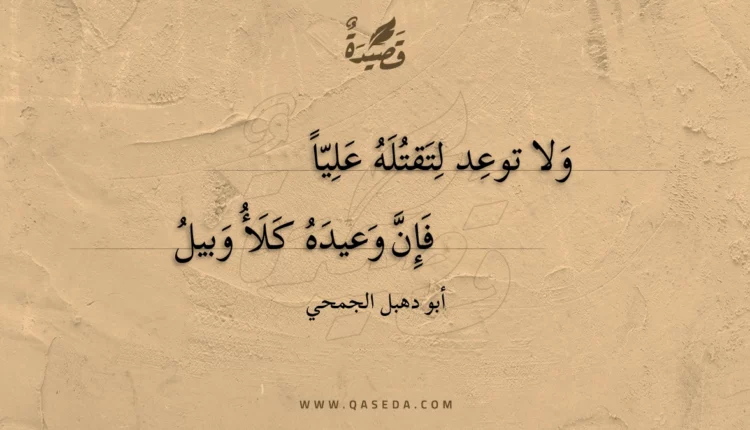 قَصِيْدَةٌ
وَلا توعِد لِتَقتُلَهُ عَلِيّاً
فَإِنَّ وَعيدَهُ كَلَأُ وَبيلُ
أبو دهبل الجمحي
WWW.QASEDA.COM